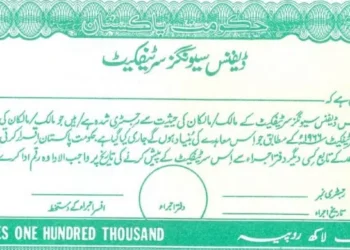 حکومت پاکستان
ڈیفنس سیونگز سرٹیفکیٹ
ہے کہ
ڈیفنس سیونگز سرٹیفکیٹ کے مالک/مالکان کی حیثیت سے رجسٹری شدہ ہے/ہیں جو مالک/مالکان
۱۹۶۶ء کے مطابق جو اس معاہدے کی بنیاد ہوں گے جاری کیا گیا ہے حکومت پاکستان اقرار کرتی
کے تابع کسی دیگر دفتر اجراء سے اس سرٹیفکیٹ کے پیش کرنے کی تاریخ پر واجب الادا وہ رقم ادا کرے
رجسٹری نمبر
تاریخ اجراء
دفتر اجراء
افسر اجراء کے دستخط
ES ONE HUNDRED THOUSAND
ک لاکھ روپیہ